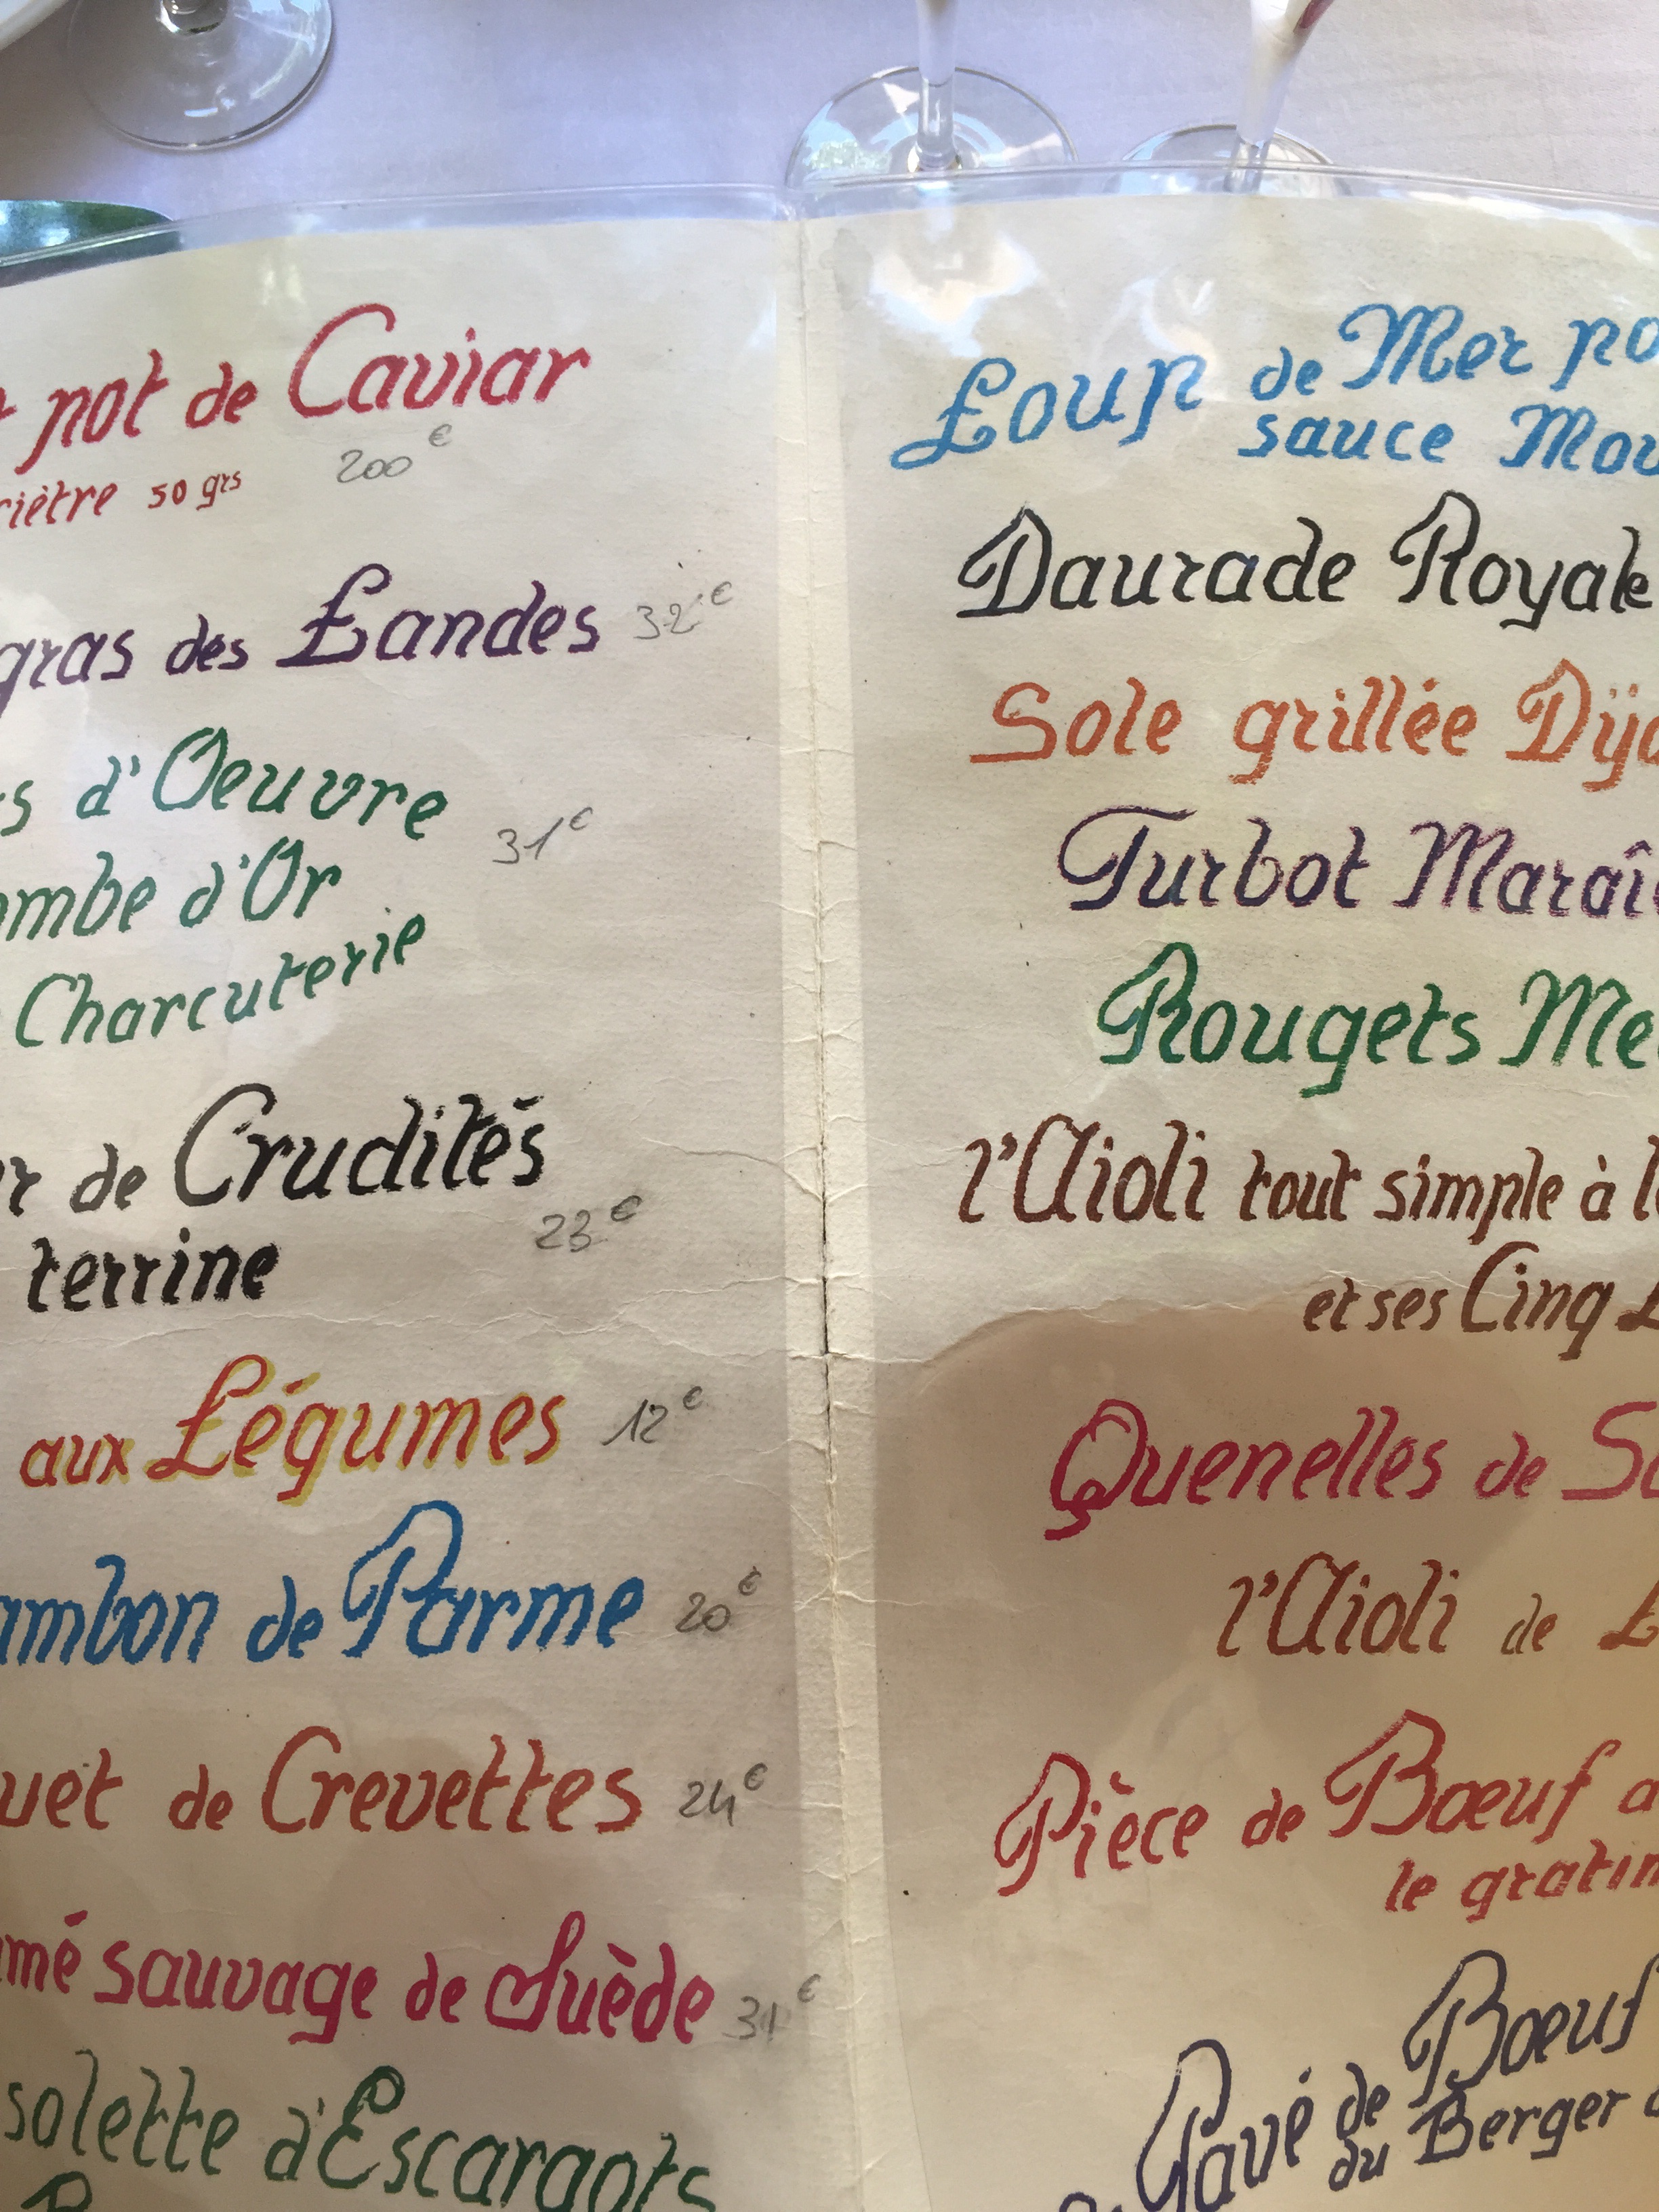 pot de Caviar
50 grs 200€
gras des Landes 32€
d'Oeuvre
31€
d'Or
Charcuterie
de Crudités
23€
terrine
aux Légumes 12€
de Parme 20€
de Crevettes 24€
sauvage de Suède 31€
d'Escargots
Loup de Mer
sauce
Daurade Royale
Sole grillée
Turbot
Rougets
l'Aioli tout simple à
et ses Cinq
Quenelles de
l'Aioli de
Pièce de Bœuf
le
Pavé de Bœuf
du Berger